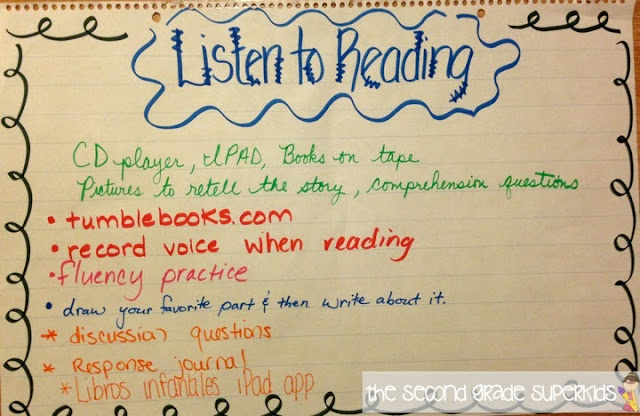 Listen to Reading
CD player, IPAD, Books on tape
Pictures to retell the story, comprehension questions
• tumblebooks.com
• record voice when reading
• fluency practice
• draw your favorite part & then write about it.
* discussion questions
* Response journal
* Libros infantales iPad app
the second grade superkids